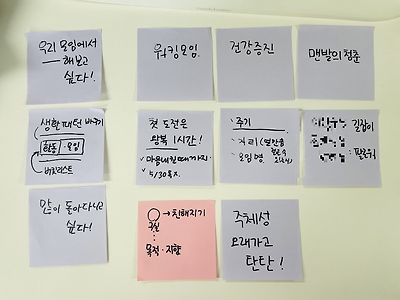 우리 모임에서
해보고
싶다!
워킹모임.
건강증진
맨발의 청춘
생활패턴 바꾸기
활동 모임
버킷리스트
첫 도전은
왕복 1시간!
마음내킬때까지.
5/30 목요.
주기
거리
모임명.
길잡이
팔로워
많이 돌아다니고
싶다!
친해지기
구실
목적·지향
주체성
오래가고
탄탄!